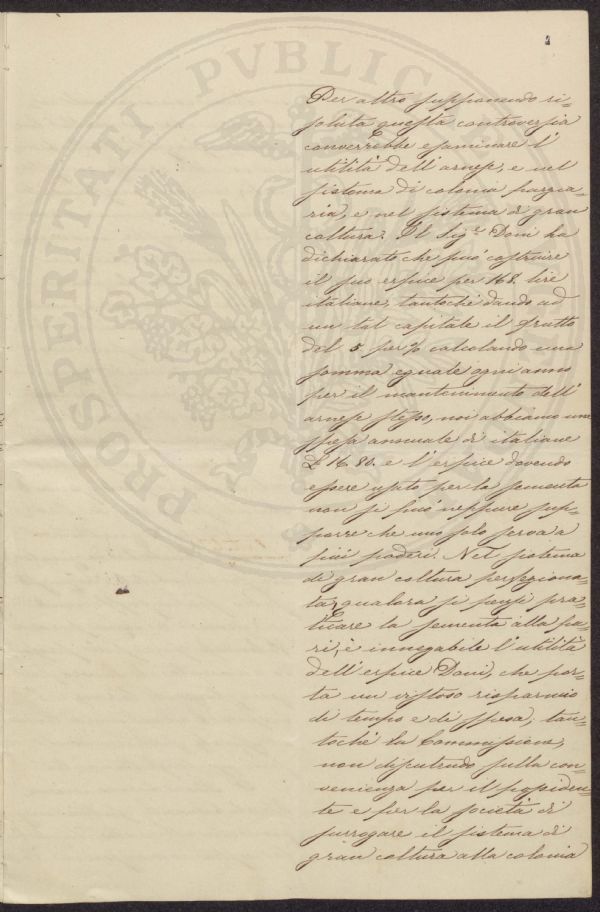 Per altro supponendo ri=
soluta questa controversia
converrebbe esaminare l'
utilità dell'arnese, e nel
sistema di colonia parzia=
ria, e nel sistema di gran
coltura. Il Sigr. Doni ha
dichiarato che può costruire
il suo erpice per 168. lire
italiane, tantochè dando ad
un tal capitale il frutto
del 5 per % calcolando una
somma eguale ogni anno
per il mantenimento dell'
arnese stesso, noi abbiamo una
spesa annuale di italiane
£ 16. 80. e l'erpice dovendo
essere usato per la sementa
non si può neppure sup=
porre che uno solo serva a
più poderi. Nel sistema
di gran coltura perfeziona=
ta, qualora si pensi pra=
ticare la sementa alla pa=
ri, è innegabile l'utilità
dell'erpice Doni, che por=
ta un vistoso risparmio
di tempo e di spesa, tan=
tochè la Commissione,
non discutendo sulla con=
venienza per il possiden=
te e per la società di
surrogare il sistema di
gran coltura alla colonia
PROSPERITATI PVBLIC